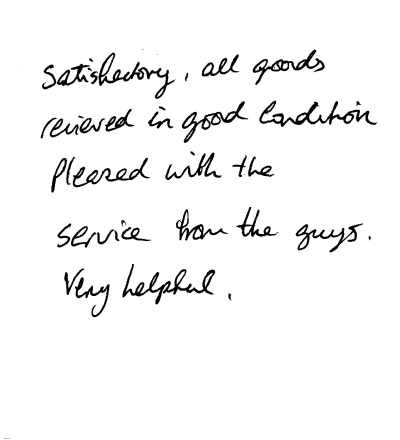 Satisfactory, all goods
recieved in good Condition
Pleased with the
service from the guys.
Very helpful.